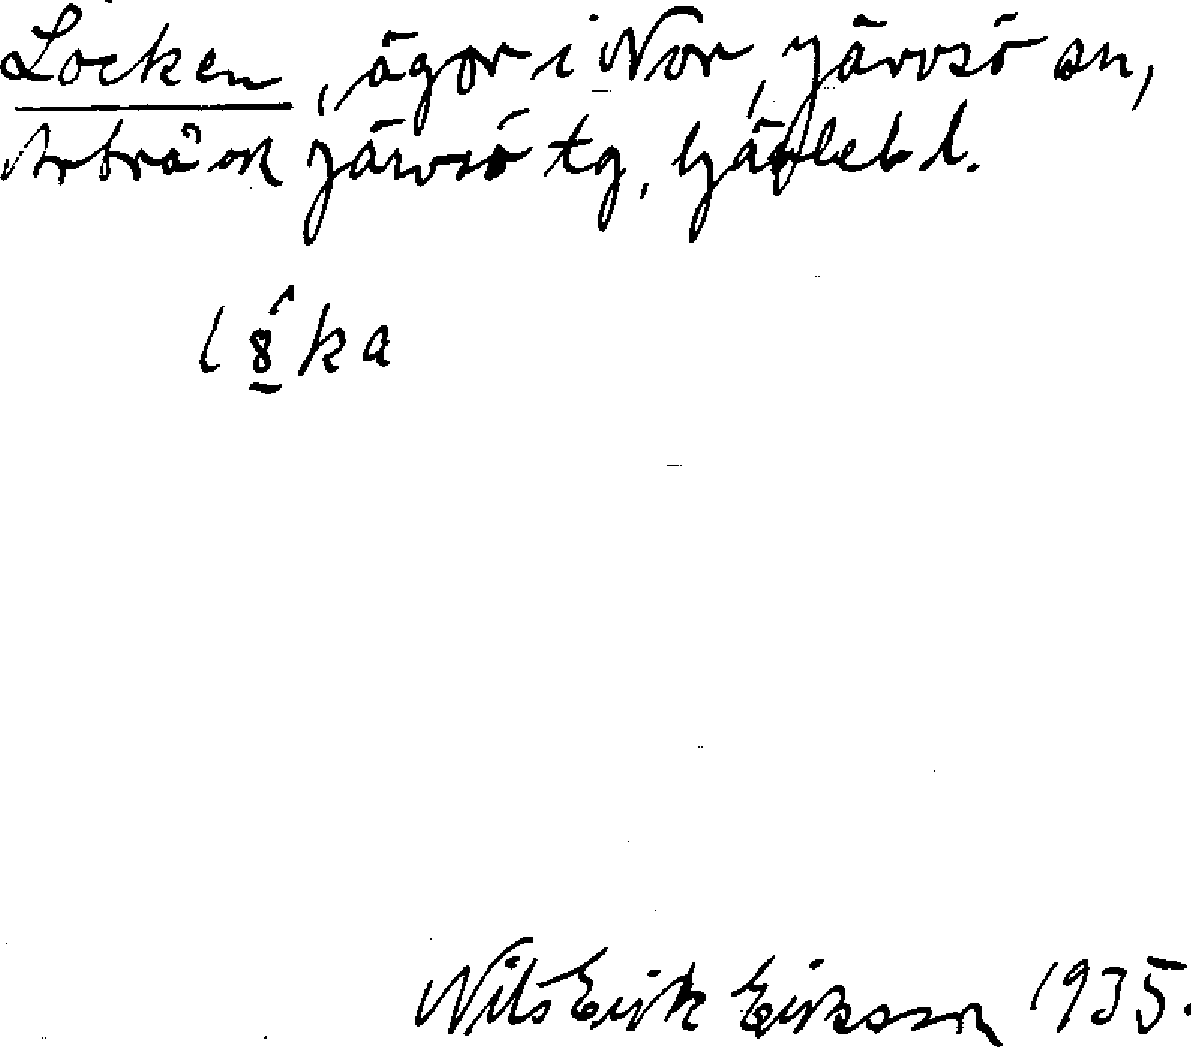 Locken, ägor i Nor, Järvsö sn,
Arbrå ok Järvsö tg, Gävleb l.
l8̲́ka
Nils Erik Eriksson 1935.